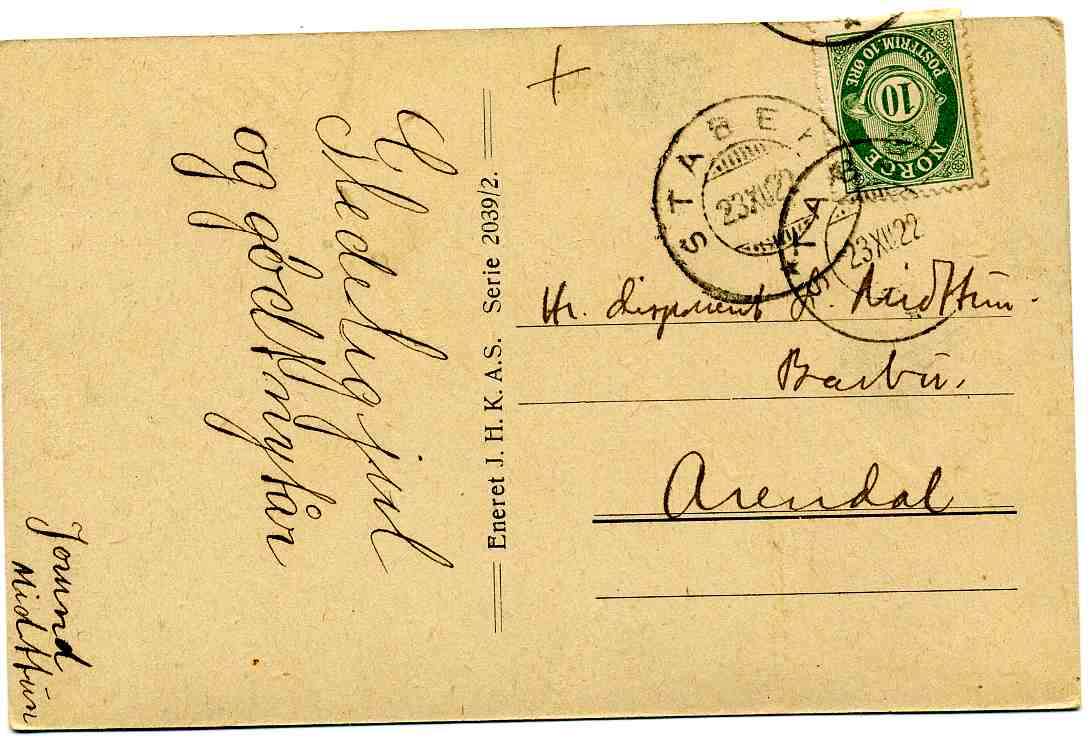 E
Glædelig jul
og godt nytår
Jorund
Midttun
Eneret J. H. K. A.S. Serie 2039/2.
NORGE
POSTFRIM. 10 ØRE
10
STABEK
23 XII 22
STAB
23 XII 22
Hr. disponent Midttun.
Barbu.
Arendal